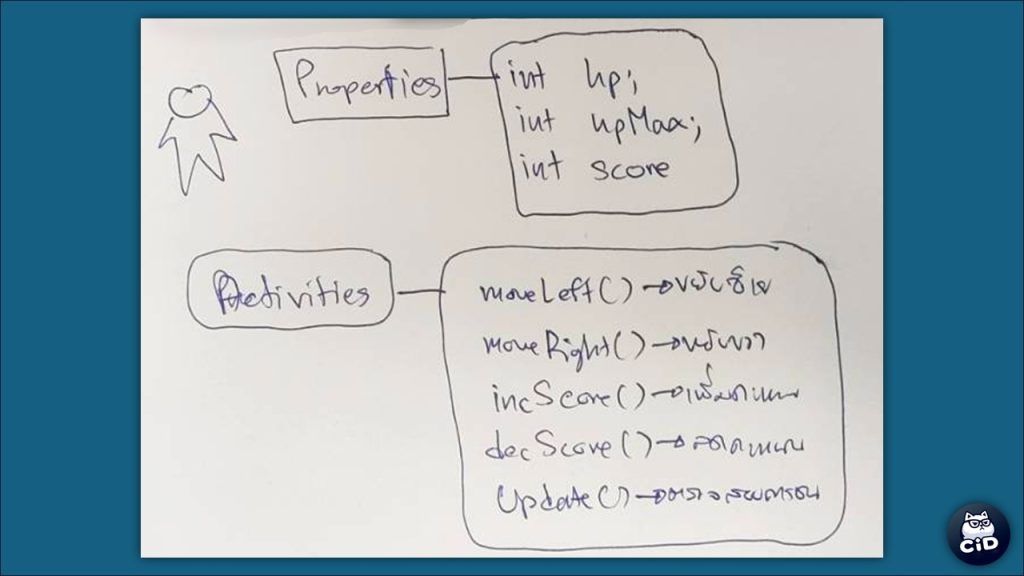 Properties
int hp;
int hpMax;
int score
Activities
moveLeft() → ขยับซ้าย
moveRight() → ขยับขวา
incScore() → เพิ่มคะแนน
decScore() → ลดคะแนน
Update() →
CiD